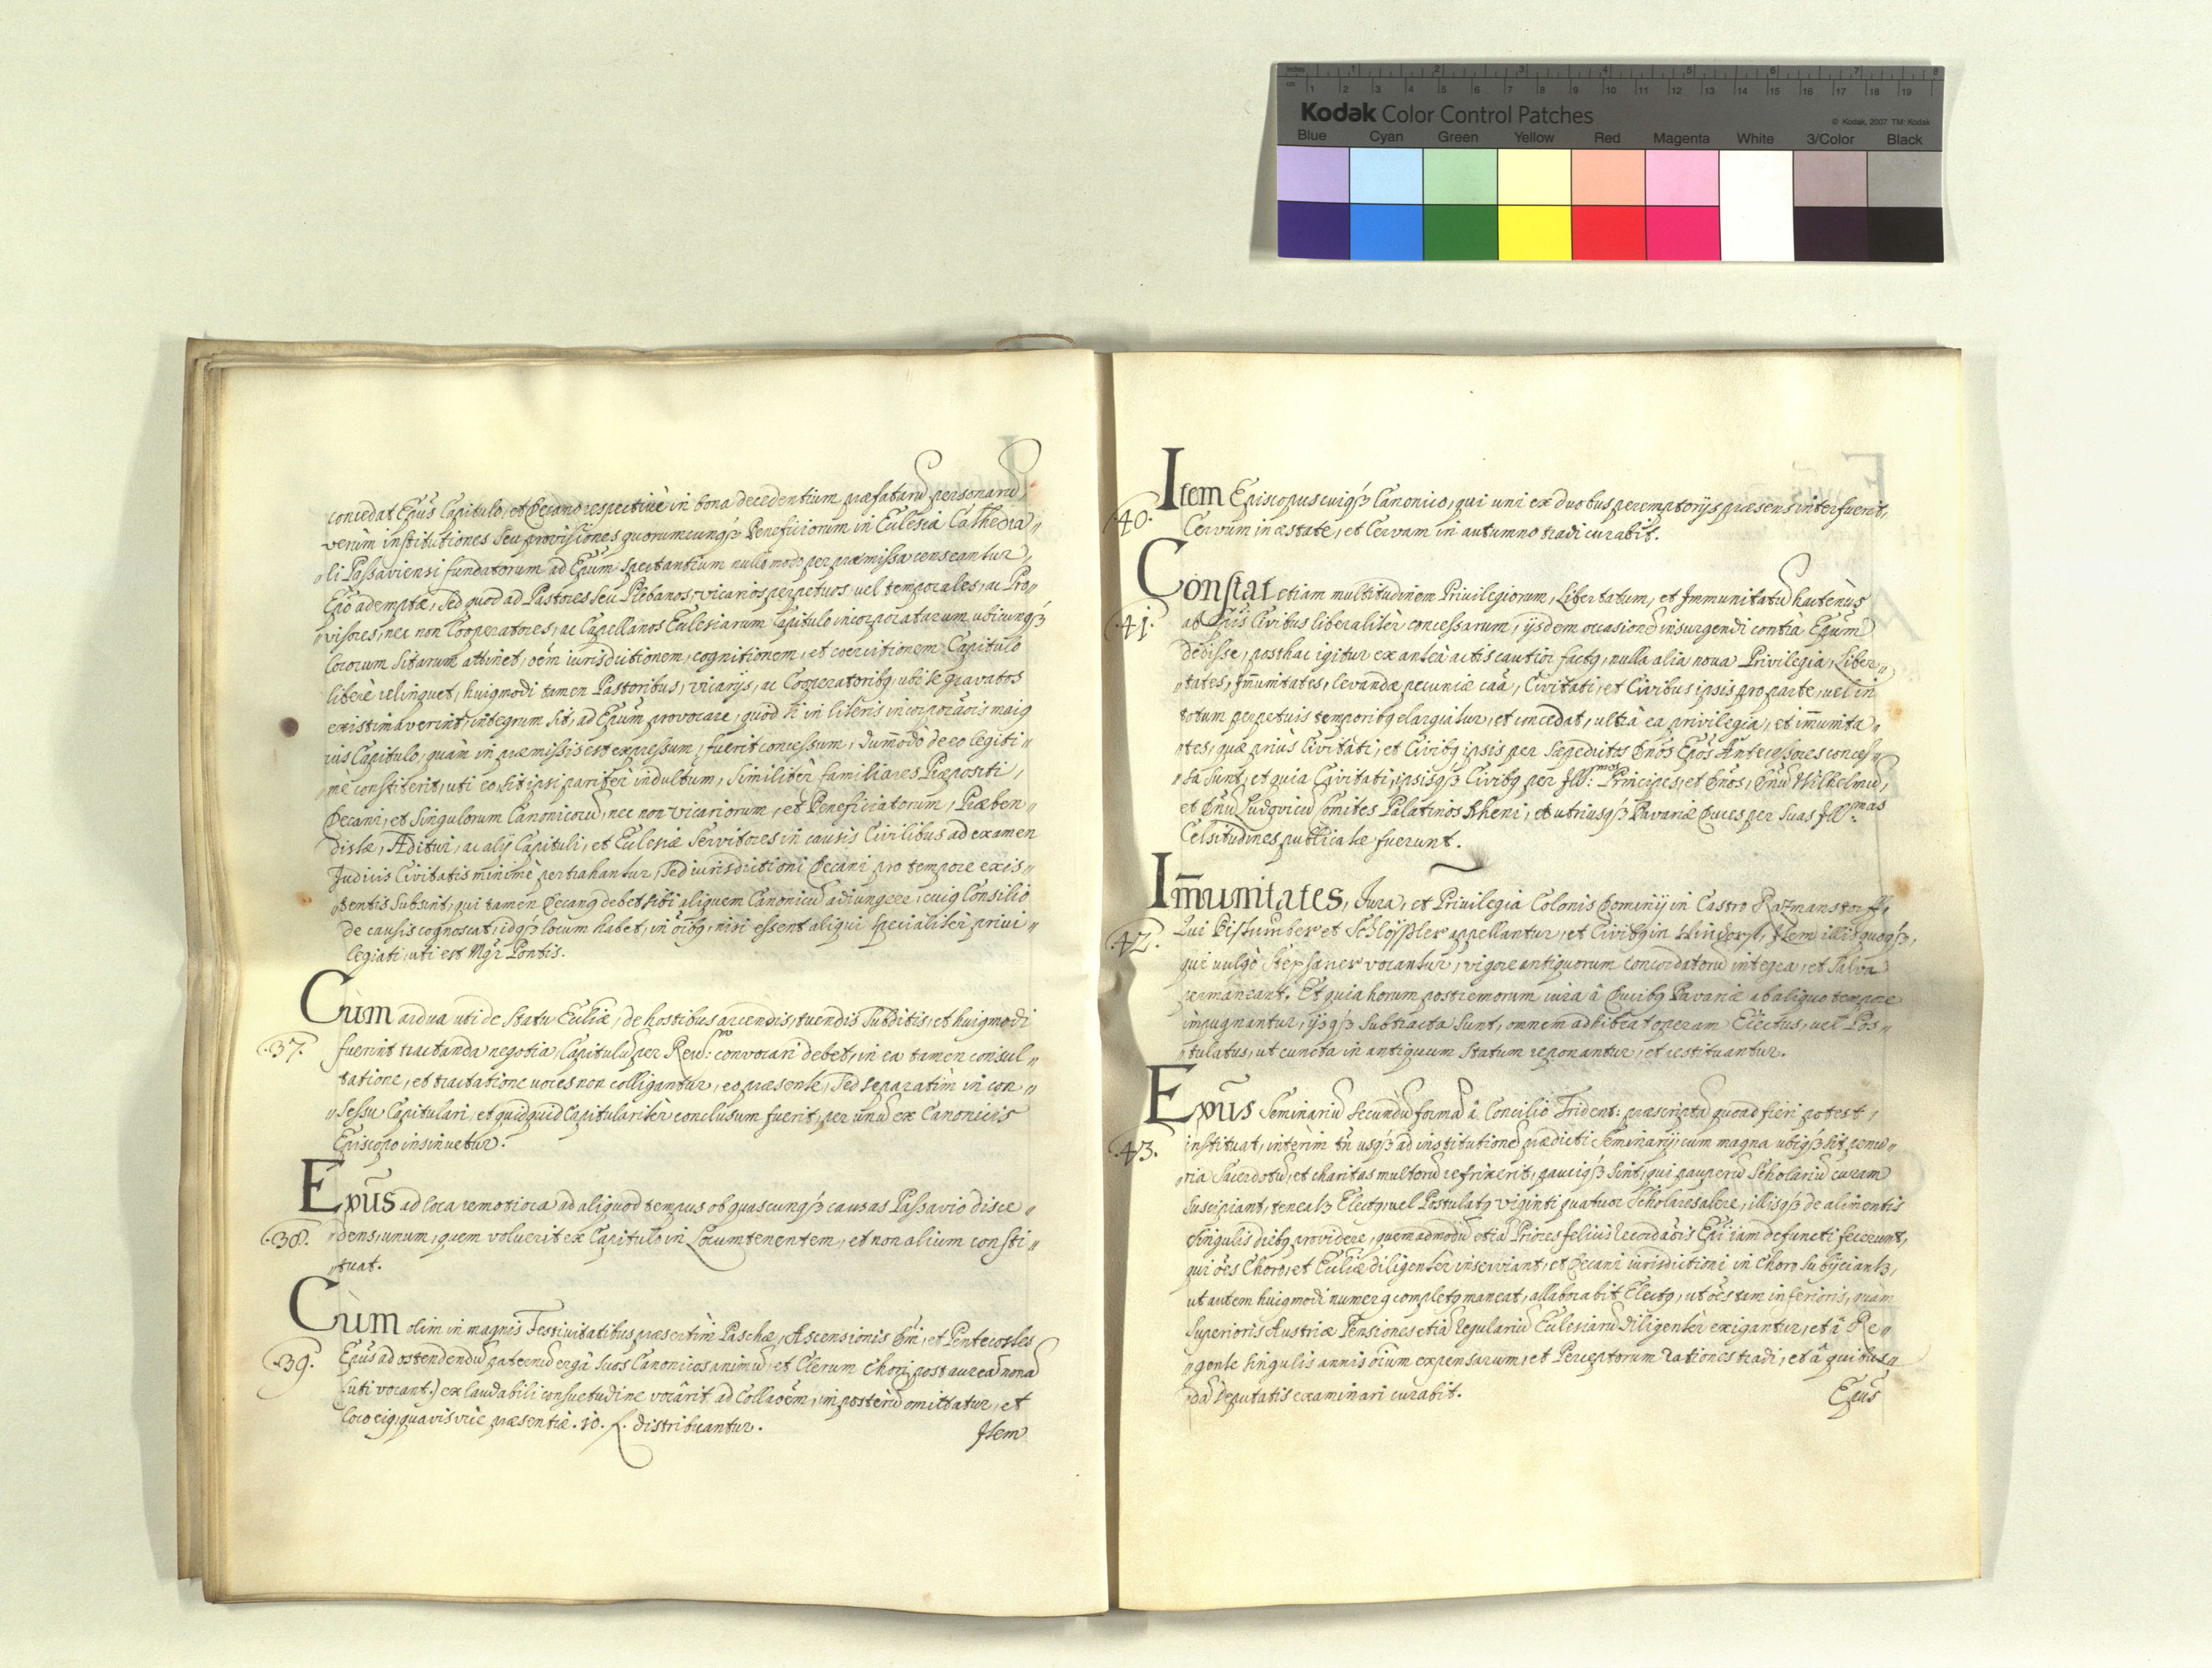 Kodak Color Control Patches
© Kodak, 2007 TM: Kodak
Blue Cyan Green Yellow Red Magenta White 3/Color Black
concedat Epũs Capitulo, et Decano respectivè in bona decedentium præfatarũ personarũ,
verùm institutiones seu provisiones quorumcunqß Beneficiorum in Ecclesia Cathedra„
„li Passaviensi fundatorum ad Epum spectantium nullo modo per præmissa censeantur,
Epõ ademptæ, sed quod ad Pastores seu Plebanos, vicarios perpetuos, vel temporales, ac Pro„
„visores, nec non Cooperatores, ac Capellanos Ecclesiarum Capitulo incorporatarum ubicunqß
locorum sitarum attinet, oem iurisdictionem, cognitionem, et coercitionem Capitulo
liberè relinquet, huiqmodi tamen Pastoribus, vicarijs, ac Cooperatoribq, ubi se gravatos
existimaverint, integrum sit, ad Epum provocare, quod si in literis incorporaõis maiq
ius Capitulo, quàm in præmissis est expressum, fuerit concessum, dum̃odò de eo legiti„
„mè constiterit, uti eo, sit ipsi pariter indultum, Similitèr familiares Præpositi,
Decani, et singulorum Canonicorũ, nec non vicariorum, et Beneficiatorum, Præben„
distæ, Æditui, ac alij Capituli, et Ecclesiæ Servitores in causis Civilibus ad examen
Judicis Civitatis minimè pertrahantur, sed iurisdictioni Decani pro tempore exis„
„tentis subsint, qui tamen Decanq debet, sibi aliquem Canonicũ adiungere, cuiq Consilio
de causis cognoscat, idqß locum habet, in oibq, nisi essent aliqui specialitèr privi„
legiati, uti est Mgr̃ Pontis.
Cùm ardua uti de statu Eccliæ, de hostibus arcendis, tuendis subditis, et huiqmodi
.37. fuerint tractanda negotia, Capitulũ per Rev:mo convocari debet, in ea tamen consul„
tatione, et tractatione voces non colligantur, eo præsente, sed separatìm in con„
„sessu Capitulari, et quidquid Capitularitèr conclusum fuerit, per unũ ex Canonicis
Episcopo insinuetur.
Epũs ad loca remotiora ad aliquod tempus ob quascunqß causas Passavio disce„
.38. „dens, unum, quem voluerit ex Capitulo in Locumtenentem, et non alium consti„
„tuat.
Cùm olim in magnis Festivitatibus præsertìm Paschæ, Ascensionis Dñi, et Pentecostes
.39. Epũs ad ostendendũ paternũ ergà suos Canonicos animũ, et Clerum Chori, post aureã nonã
(uti vocant.) ex laudabili consuetudine vocârit ad Collaoẽm, in posterũ omittatur, et
loco eiq, quavis vice præsentiæ. 10. f. distribuantur.
Item
Item Episcopus cuiqß Canonico, qui uni ex duobus peremptorijs præsens interfuerit,
.40. Cervum in æstate, et Cervam in autumno tradi curabit.
Constat etiam multitudinem Privilegiorum, Libertatum, et Immunitatũ hactenùs
.41. ab Epis Civibus liberalitèr concessarum, ijsdem occasionẽ insurgendi contrà Epum
dedisse, posthac igitur ex anteà actis cautior factq, nulla alia nova Privilegia, Liber„
„tates, Im̃unitates, levandæ pecuniæ caã, Civitati, et Civibus ipsis pro parte, vel in
totum perpetuis temporibq elargiatur, et concedat, ultrà ea privilegia, et im̃unita„
„tes, quæ priùs Civitati, et Civibq ipsis per sæpedictos Dños Epõs Antecessores conces„
„sa sunt, et quia Civitati, ipsisqß Civibq per Ill:mos Principes, et Dños, Dñũ Wilhelmũ,
et Dñũ Ludovicũ Comites Palatinos Rheni, et utriusqß Bavariæ Duces per suas Ill:mas
Celsitudines publicatæ fuerunt.
Im̃unitates, Iura, et Privilegia Colonis Dominij in Castro Razmanstorff,
.42. Qui et Schlößler appellantur, et Civibq in Item illis quoqß,
qui vulgò Stephaner vocantur, vigore antiquorum concordatorũ integra, et salva
permaneant. Et quia horum postremorum iura à Ducibq Bavariæ ab aliquo tempore
impugnantur, ijsqß subtracta sunt, omnem adhibeat operam Electus, vel Pos„
„tulatus, ut cuncta in antiquum statum reponantur, et restituantur.
Epũs Seminariũ secundũ formã à Concilio Trident: præscriptã quoad fieri potest,
.43. instituat, interìm tñ usqß ad institutionẽ prædicti Seminarij, cum magna ubiqß sit penu„
„ria Sacerdotũ, et charitas multorũ refrixerit, pauciqß sint, qui pauperũ Scholariũ curam
suscipiant, teneatß Electq, vel Postulatq viginti quatuor Scholares alere, illisqß de alimentis
singulis diebq providere, quemadmodũ etiã Priores felicis recordaõis Epĩ iam defuncti fecerunt,
qui oẽs Choro, et Eccliæ diligentèr inserviant, et Decani iurisdictioni in Choro subijciantß,
ut autem huiqmodi numerq completq maneat, allaborabit Electq, ut oẽs tam inferioris, quàm
superioris Austriæ Pensiones etiã Regulariũ Ecclesiarũ diligentèr exigantur, et à Re„
„gente singulis annis oĩum expensarum, et Perceptorum rationes tradi, et à quibus„
„dã Deputatis examinari curabit.
Epus